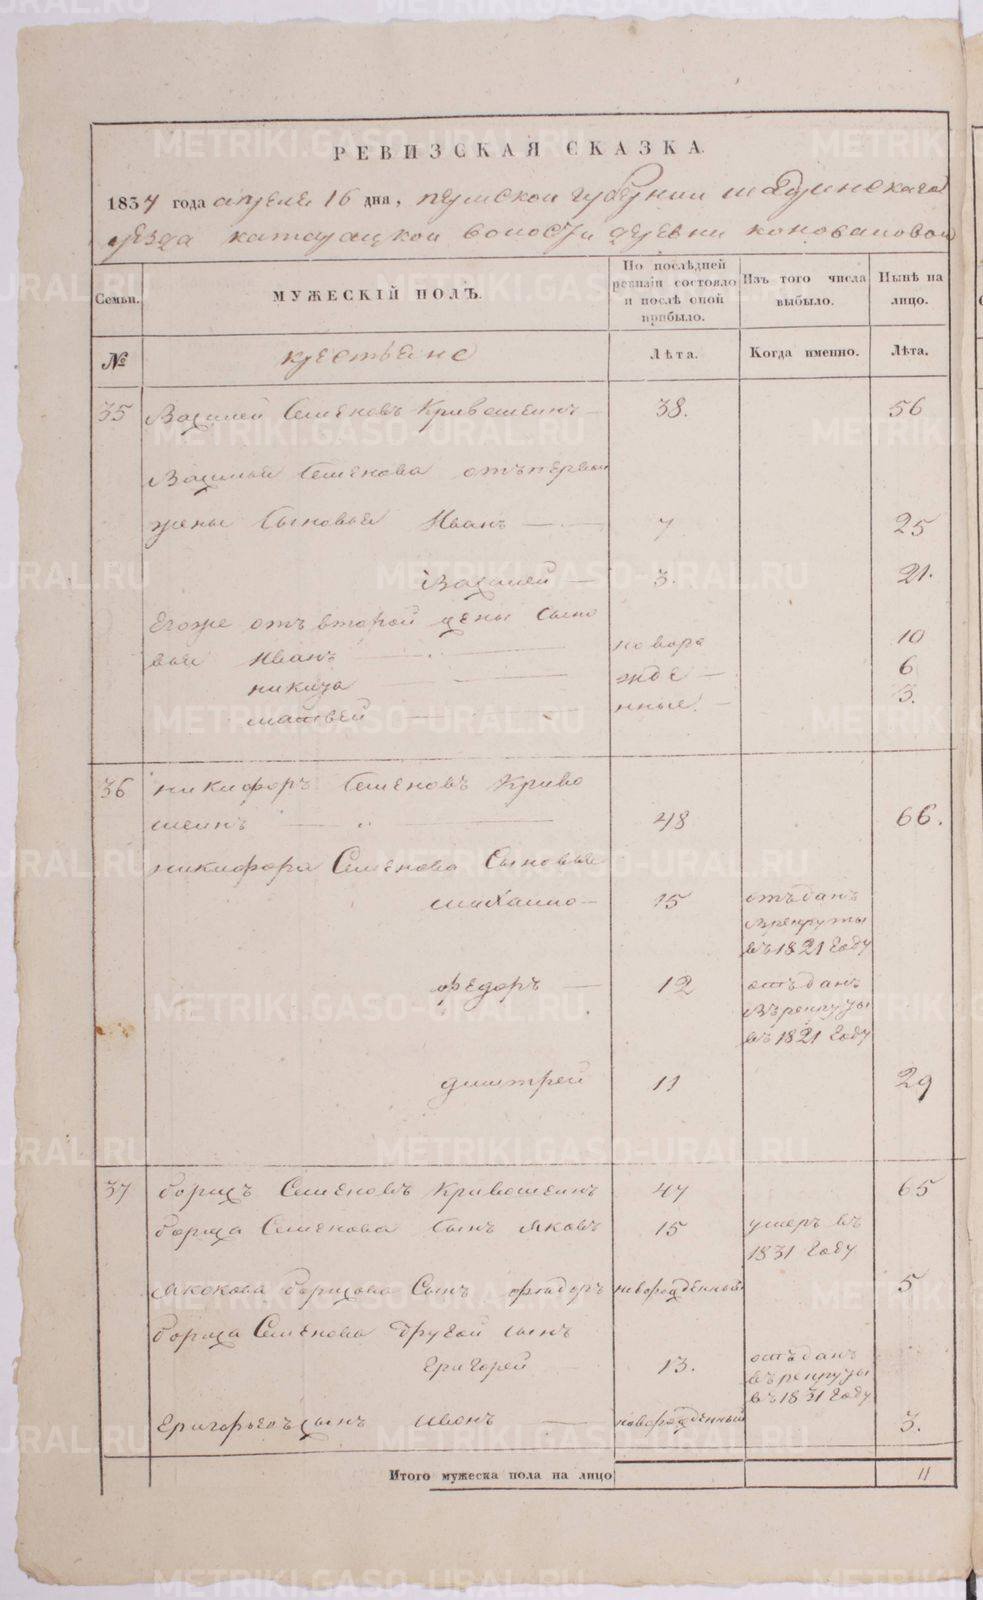 РЕВИЗСКАЯ СКАЗКА.
1834 года апреля 16 дня, пермской губернии шадринскаго
уезда катайцкой волости деревни коноваловой
Семьи.
МУЖЕСКІЙ ПОЛЪ.
По послѣдней ревизіи состояло и послѣ оной прибыло.
Изъ того числа выбыло.
Нынѣ на лицо.
№
крестьяне
Лѣта.
Когда именно.
Лѣта.
35 Василей Семеновъ Кривошеинъ 38. 56
Василья Семенова отъ первой
жены Сыновья Иванъ 7 25
Василей 3. 21.
Егоже отъ второй жены сыно
вья Иванъ новоро 10
никита жде 6
матвей нные 3.
36 никифоръ Семеновъ Криво
шеинъ 48 66.
никифора Семенова Сыновья
15 отъданъ
в рекруты
въ 1821 году
федоръ 12 отъданъ
въ рекруты
въ 1821 году
дмитрей 11 29
37 борисъ Семеновъ Кривошеинъ 47 65
бориса Семенова сынъ яковъ 15 умеръ въ
1831 году
якокова борисова Сынъ новорожденный 5
бориса Семенова другой сынъ
григорей 13. отъданъ
въ рекруты
въ 1831 году
григорьевъ сынъ ивонъ новорожденный 3.
Итого мужеска пола на лицо 11
METRIKI.GASO-URAL.RU